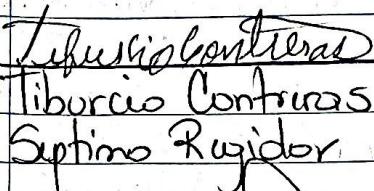 Tiburcio Contreras
Tiburcio Contreras
Septimo Regidor